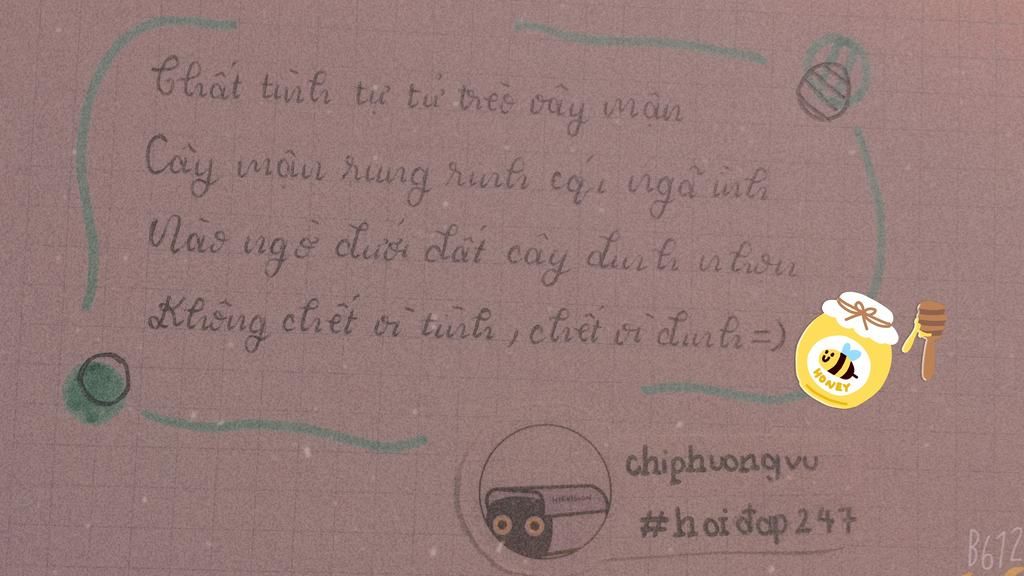 Thất tình tự tử trèo cây mận
Cây mận rung rinh cá ngã ình
Nào ngờ dưới đất cây đinh nhọn
Không chết vì tình, chết vì đinh =)
HONEY
chiphuongvu
#hoidap247
B612